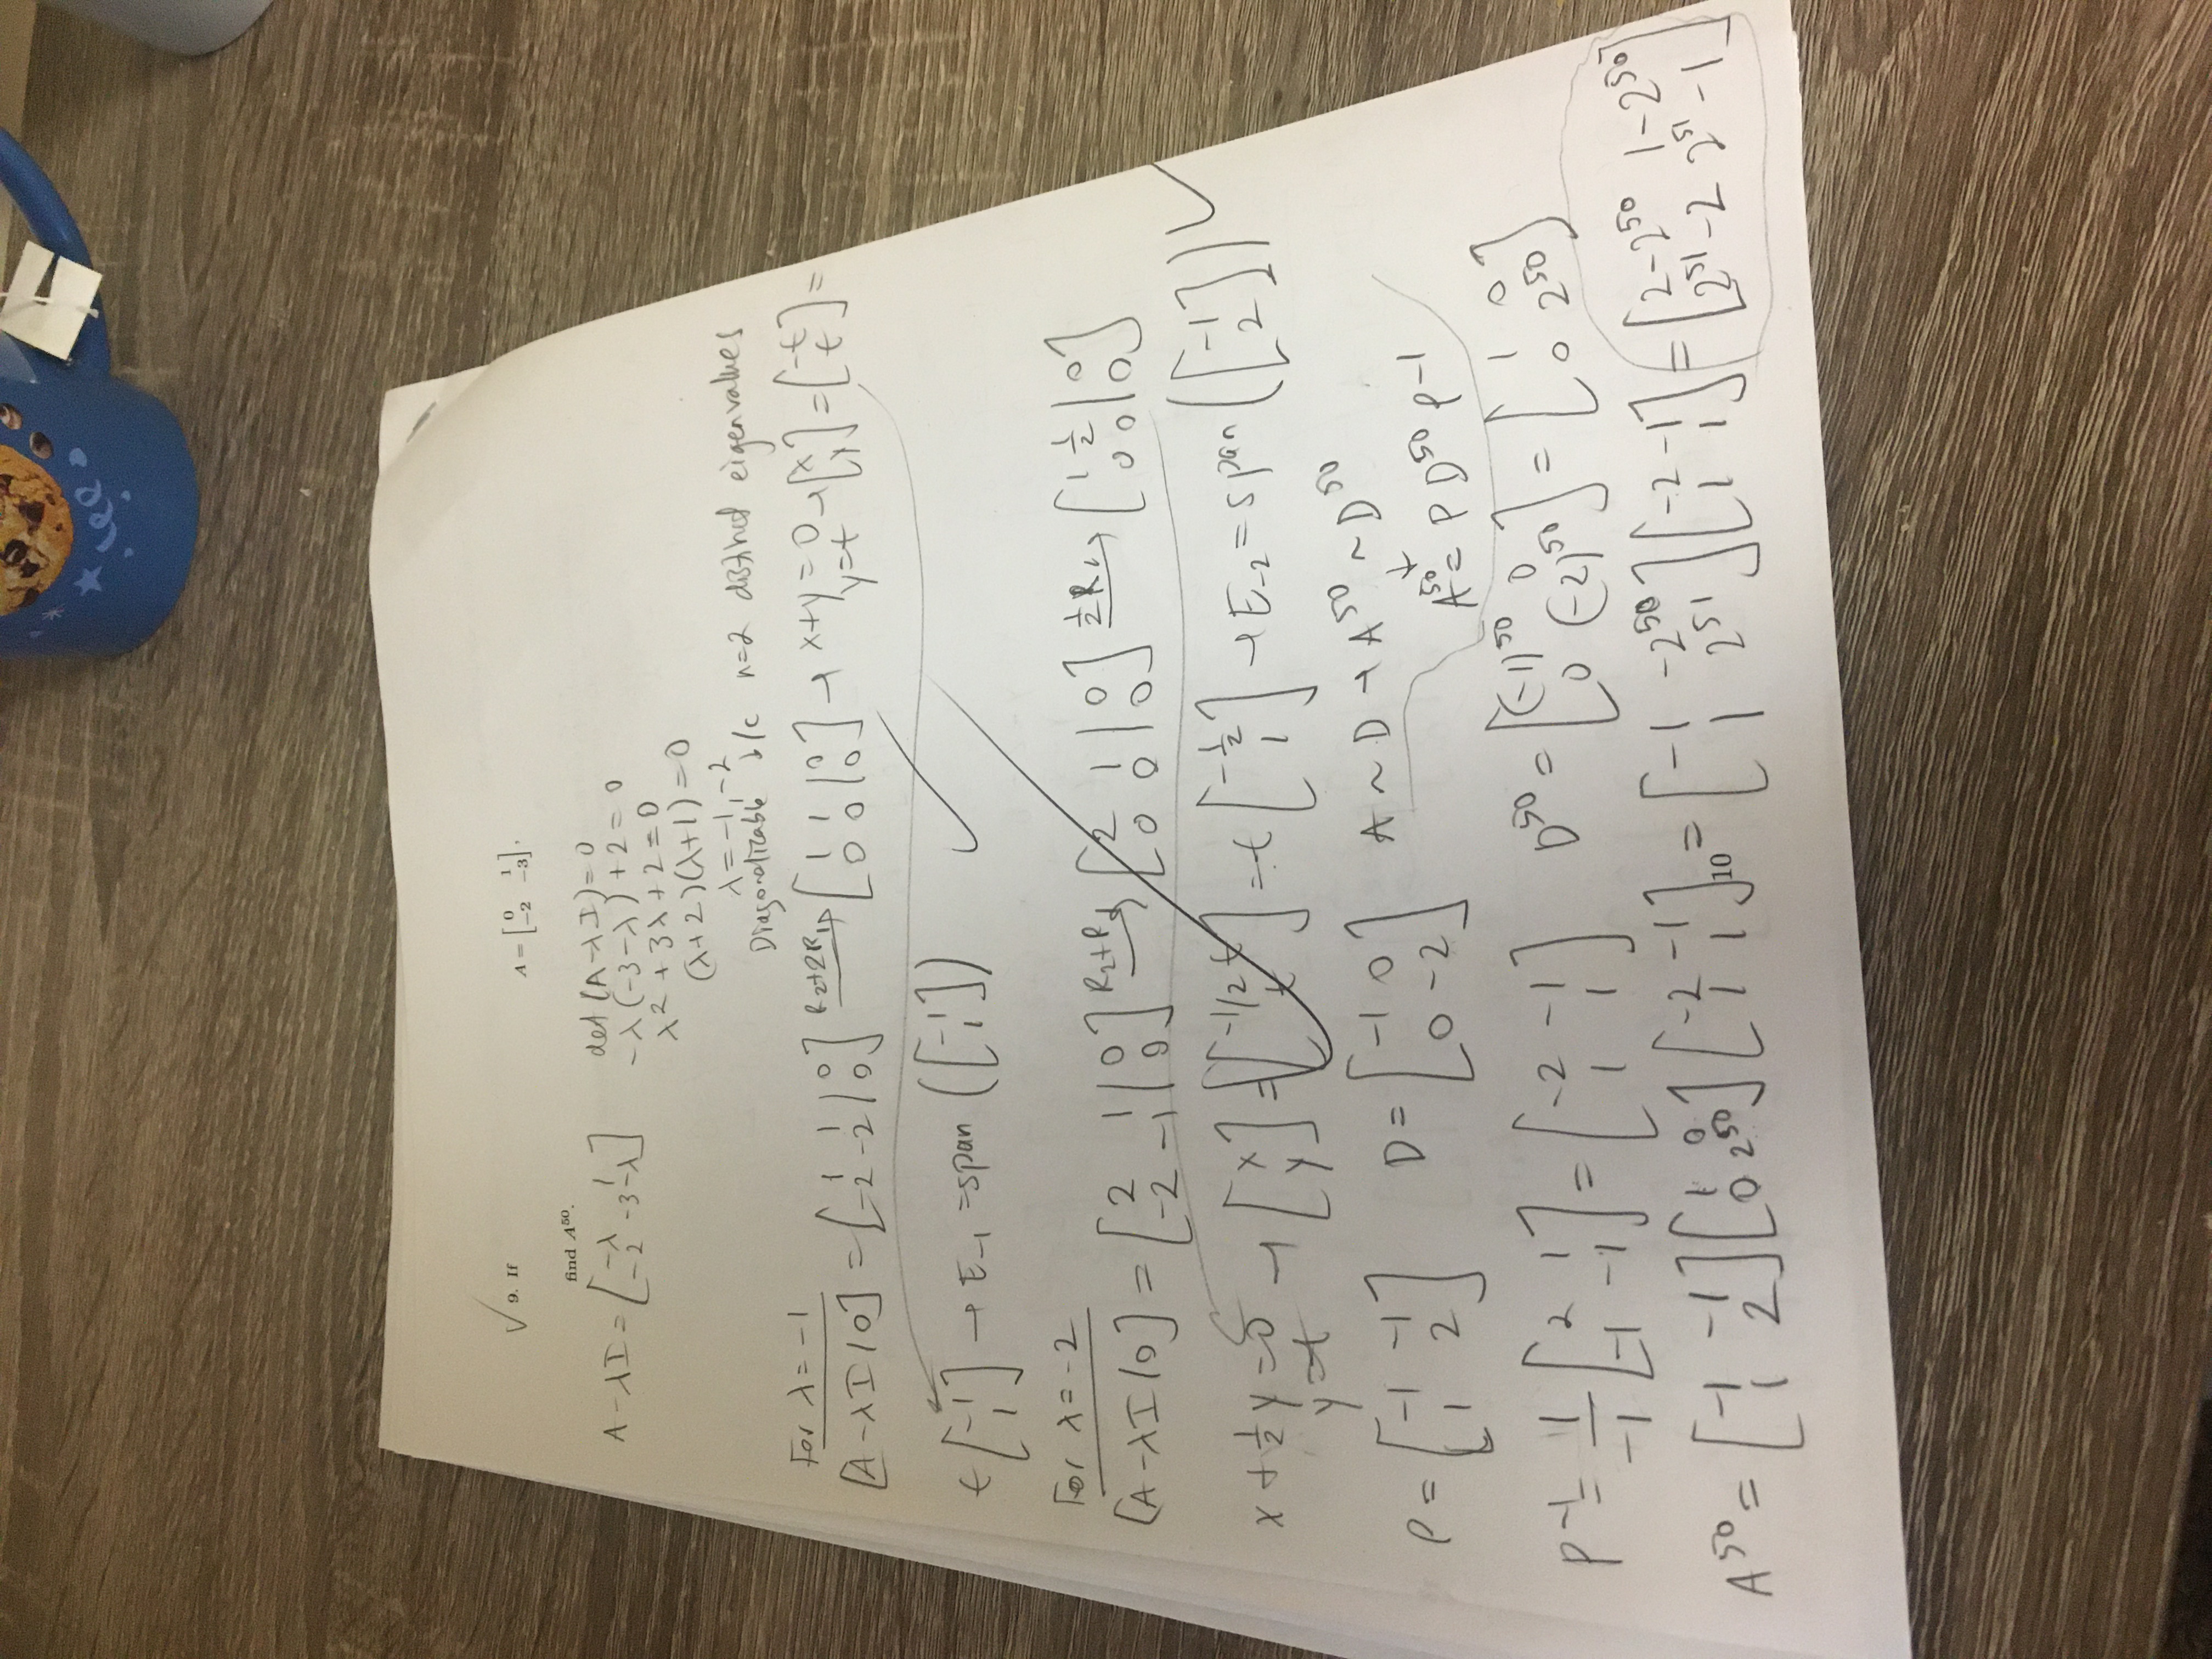 lee
✓ 9. If A = [0 1; -2 -3],
find A⁵⁰.
A-λI = [-λ 1; -2 -3-λ]
det (A-λI) = 0
-λ(-3-λ) + 2 = 0
λ² + 3λ + 2 = 0
(λ+2)(λ+1) = 0
λ = -1, -2
Diagonalizable b/c n=2 distinct eigenvalues
For λ = -1
[A-λI|0] = [1 1 | 0; -2 -2 | 0] R₂+2R₁→ [1 1 | 0; 0 0 | 0] → x+y=0 y=t → [x; y] = [-t; t] =
t[-1; 1] → E₋₁ = span ([-1; 1]) ✓
For λ = -2
[A-λI|0] = [2 1 | 0; -2 -1 | 0] R₂+R₁→ [2 1 | 0; 0 0 | 0] ½R₁→ [1 ½ | 0; 0 0 | 0]
x + ½y = 0 y=t → [x; y] = [-1/2 t; t] = t[-½; 1] → E₋₂ = span ([-1; 2]) ✓
P = [-1 -1; 1 2] D = [-1 0; 0 -2] A ~ D → A⁵⁰ ~ D⁵⁰
A⁵⁰ = P D⁵⁰ P⁻¹
P⁻¹ = 1/-1 [2 1; -1 -1] = [-2 -1; 1 1] D⁵⁰ = [(-1)⁵⁰ 0; 0 (-2)⁵⁰] = [1 0; 0 2⁵⁰]
A⁵⁰ = [-1 -1; 1 2][1 0; 0 2⁵⁰][-2 -1; 1 1] = [-1 -2⁵⁰; 1 2⁵¹][-2 -1; 1 1] = [2-2⁵⁰ 1-2⁵⁰; 2⁵¹-2 2⁵¹-1]
10